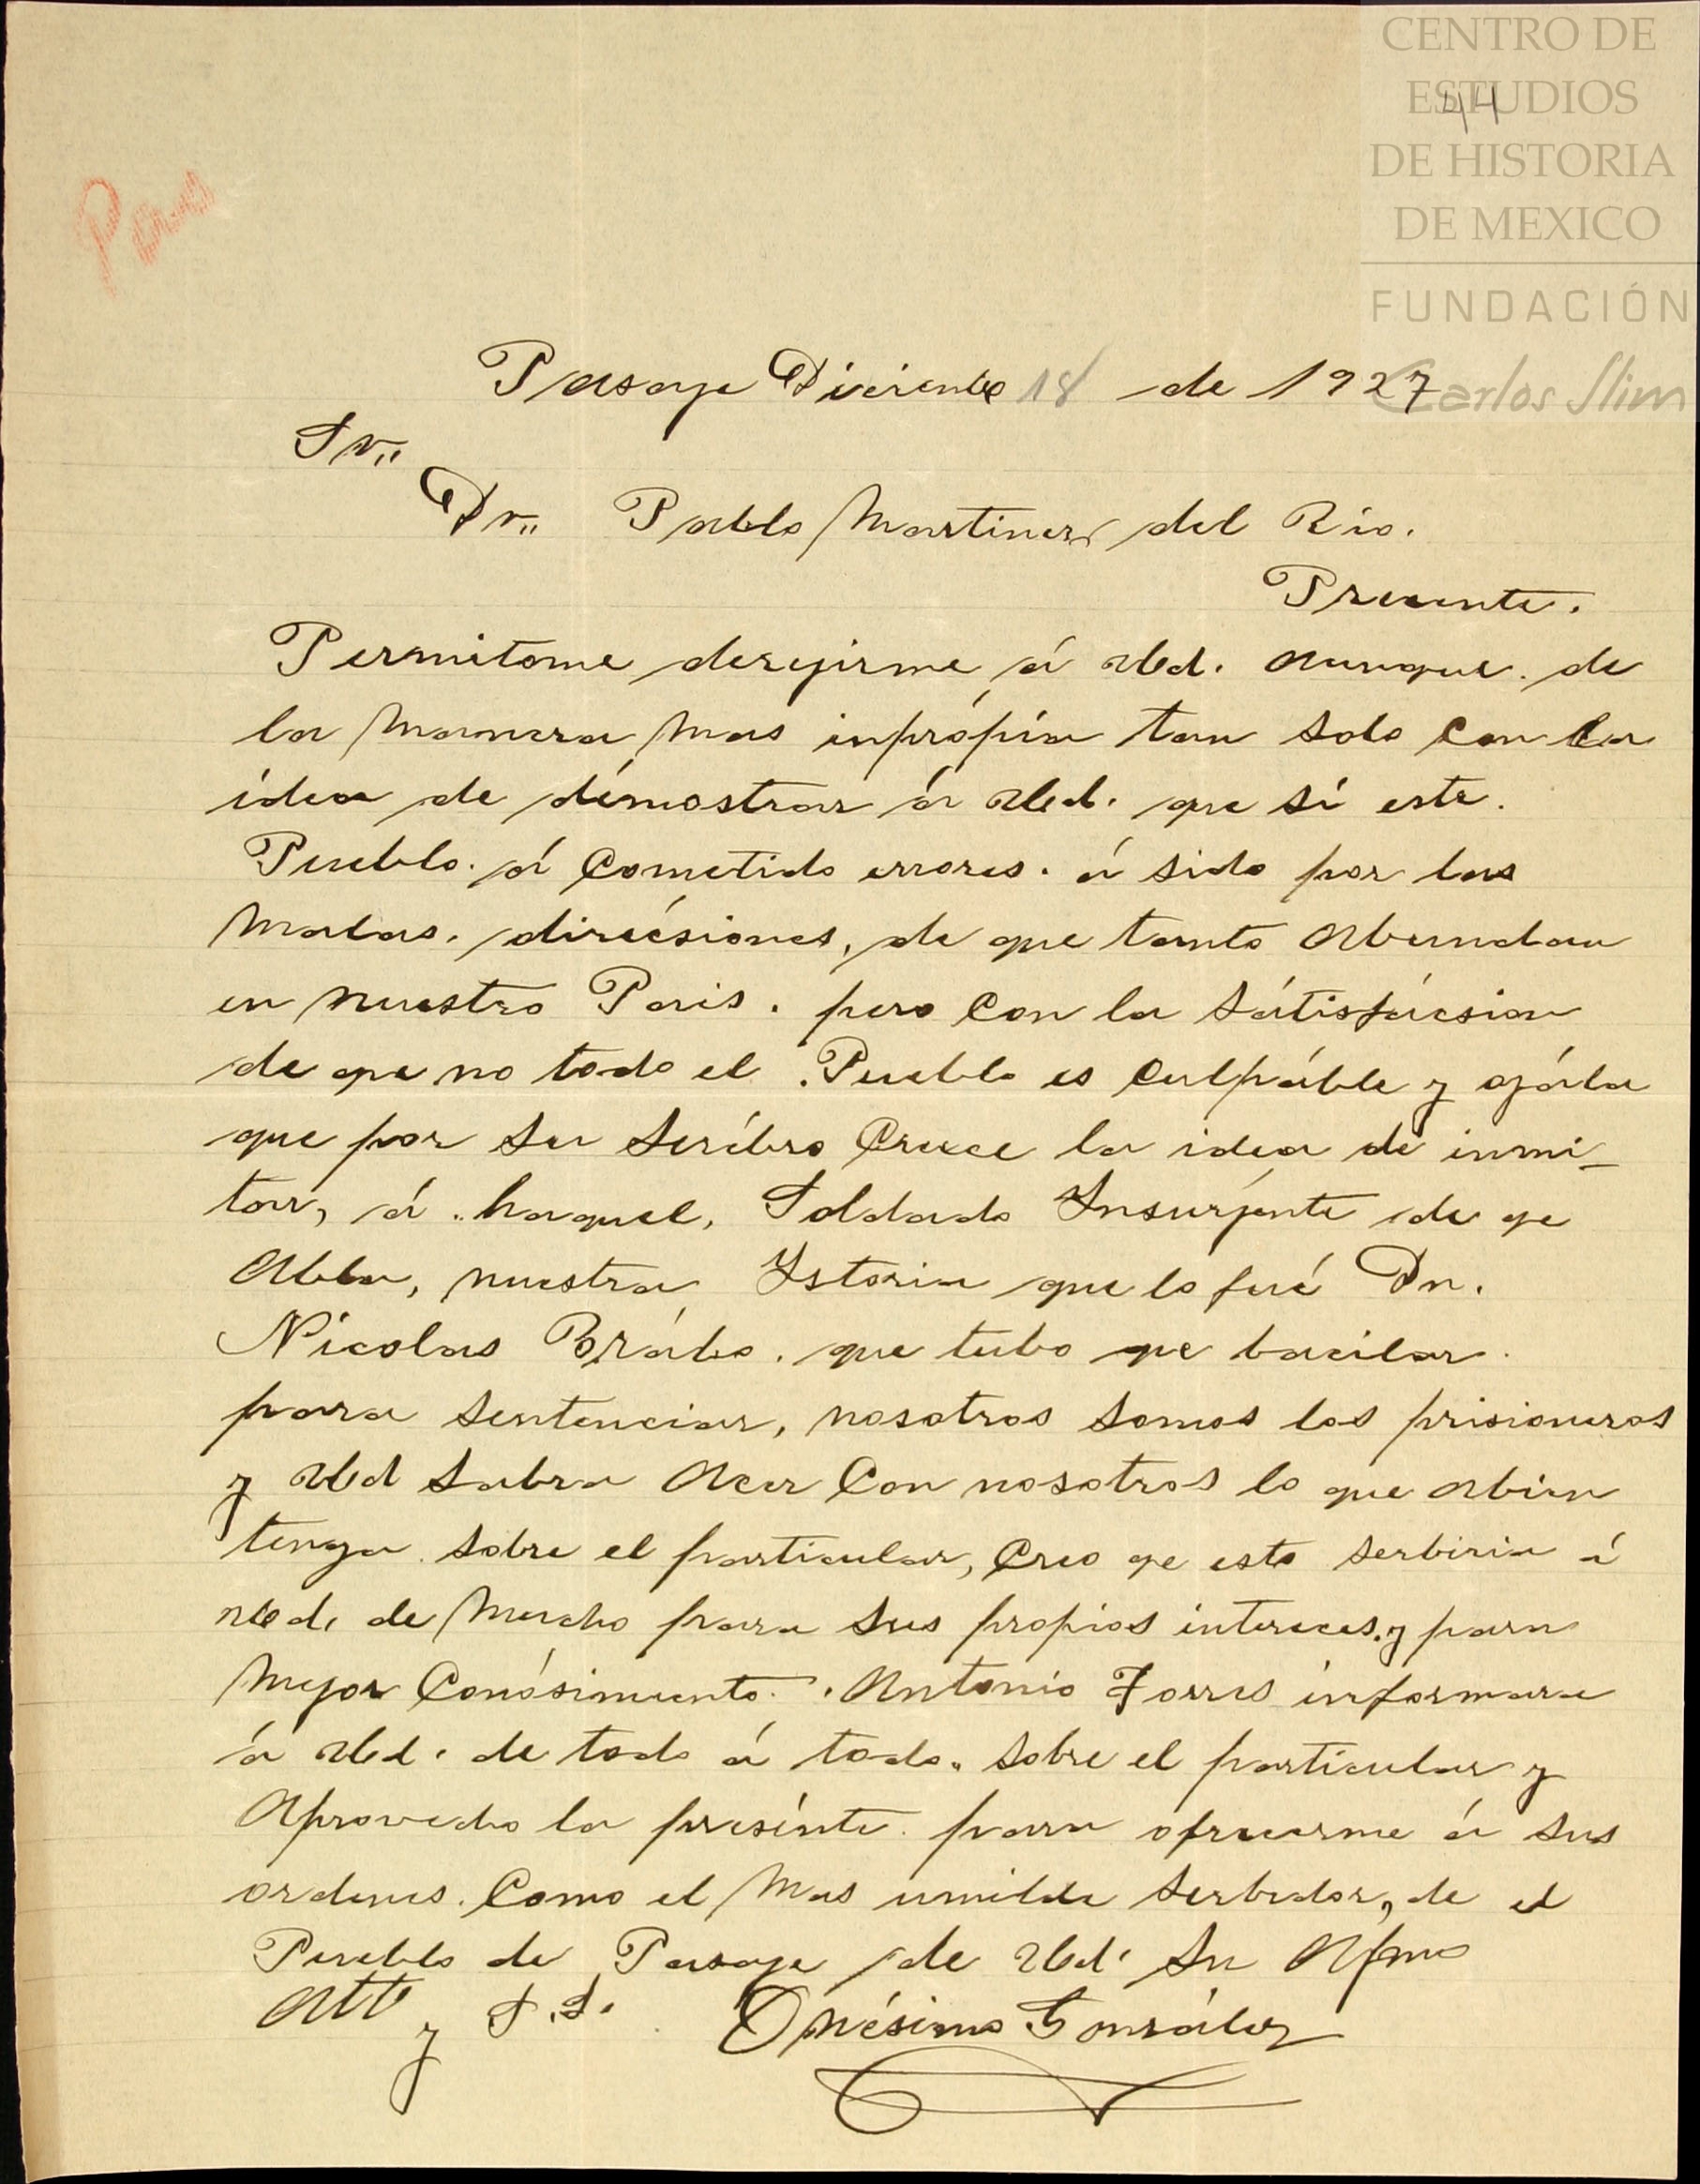 CENTRO DE
ESTUDIOS
DE HISTORIA
DE MEXICO
FUNDACIÓN
Carlos Slim
44
Pasaje Diciembre 18 de 1927
Sr.,,
Dn.,, Pablo Martinez del Rio.
Precente.
Permitome derejirme á Ud. aunque. de
la manera mas inprópia tan solo con la
idea de démostrar á Ud. que sí este.
Pueblo. á cometido errores. á sido por las
malas. direcsiones, de que tanto abundan
en nuestro Pais. pero con la sátisfácsion
de qe no todo el Pueblo es culpáble y ojála
que por su serébro cruce la idea de inmi-
tar, á haquel, Soldado Insurjente de qe
abla, nuestra Istoria que lo fué Dn.
Nicolas Brábo. que tubo qe bacilar.
para sentenciar, nosotros somos los prisioneros
y Ud sabra acer con nosotros lo que abien
tenga sobre el particular, creo qe esto serbiria á
Ud. de mucho para sus propios intereces. y para
mejor conósimiento. Antonio Torres informara
á Ud. de todo á todo. sobre el particular y
aprovecho la presénte. para ofrecerme á sus
ordenes. como el mas umilde serbidor, de el
Pueblo de Pasaje de Ud. su Afmo
Att y S.S. Onésimo González